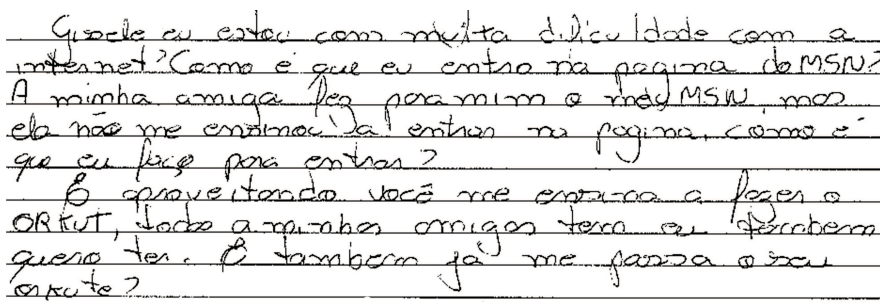 Gisele eu estou com muita dificuldade com a
internet? Como é que eu entro na pagina do MSN?
A minha amiga fez para mim o meu MSN mas
ela não me ensinou a entrar na pagina, como é
que eu faço para entrar?
E aproveitando você me ensina a fazer o
ORKUT, todo a minhas amigas tem eu tambem
quero ter. E tambem já me passa o seu
orkute?